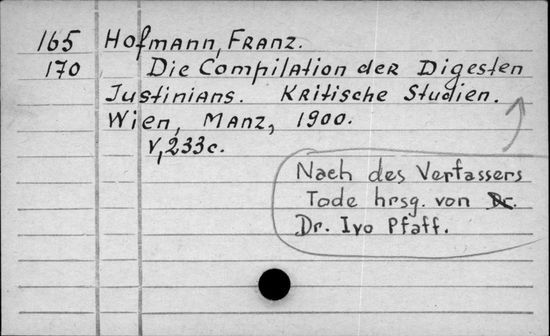 165 Hofmann, Franz.
170 Die Compilation der Digesten
Justinians. Kritische Studien.
Wien, Manz, 1900.
V, 233 c.
Nach des Verfassers
Tode hrsg. von Dr.
Dr. Ivo Pfaff.